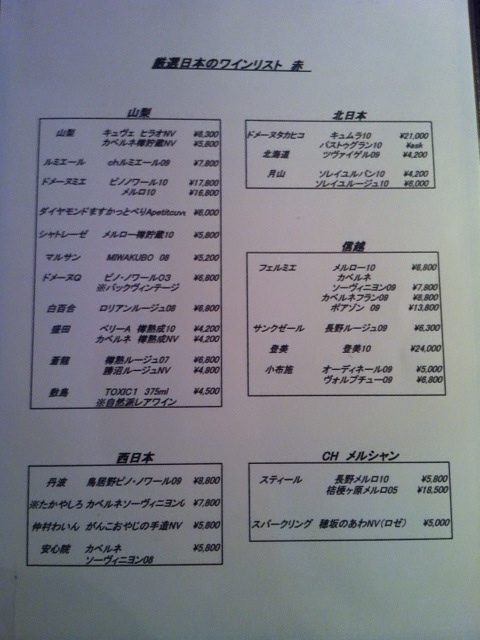 厳選日本のワインリスト 赤
山梨
山梨 キュヴェ ヒラオNV ¥6,300
カベルネ樽貯蔵NV ¥5,800
ルミエール chルミエール09 ¥7,800
ドメーヌミエ ピノノワール10 ¥17,800
メルロ10 ¥16,800
ダイヤモンド ますかっとべりApetitcuve ¥6,000
シャトレーゼ メルロー樽貯蔵10 ¥5,800
マルサン MIWAKUBO 08 ¥5,200
ドメーヌQ ピノ・ノワール03 ¥6,800
※バックヴィンテージ
白百合 ロリアンルージュ08 ¥6,800
盛田 ベリーA 樽熟成10 ¥4,200
カベルネ 樽熟成NV ¥4,200
蒼龍 樽熟ルージュ07 ¥6,800
勝沼ルージュNV ¥4,800
敷島 TOXIC1 375ml ¥4,500
※自然派レアワイン
北日本
ドメーヌタカヒコ キュムラ10 ¥21,000
パストゥグラン10 ¥ask
北海道 ツヴァイゲル09 ¥4,200
月山 ソレイユルバン10 ¥4,200
ソレイユルージュ10 ¥6,000
信越
フェルミエ メルロー10 ¥6,800
カベルネ
ソーヴィニヨン09 ¥7,800
カベルネフラン09 ¥8,800
ボアソン 09 ¥13,800
サンクゼール 長野ルージュ09 ¥6,300
登美 登美10 ¥24,000
小布施 オーディネール09 ¥5,000
ヴォルプチュー09 ¥6,800
西日本
丹波 鳥居野ピノ・ノワール09 ¥8,800
※たかやしろ カベルネソーヴィニヨン ¥7,800
仲村わいん がんこおやじの手造NV ¥5,800
安心院 カベルネ ¥5,800
ソーヴィニヨン08
CH メルシャン
スティール 長野メルロ10 ¥5,800
桔梗ヶ原メルロ05 ¥18,500
スパークリング 穂坂のあわNV(ロゼ) ¥5,000